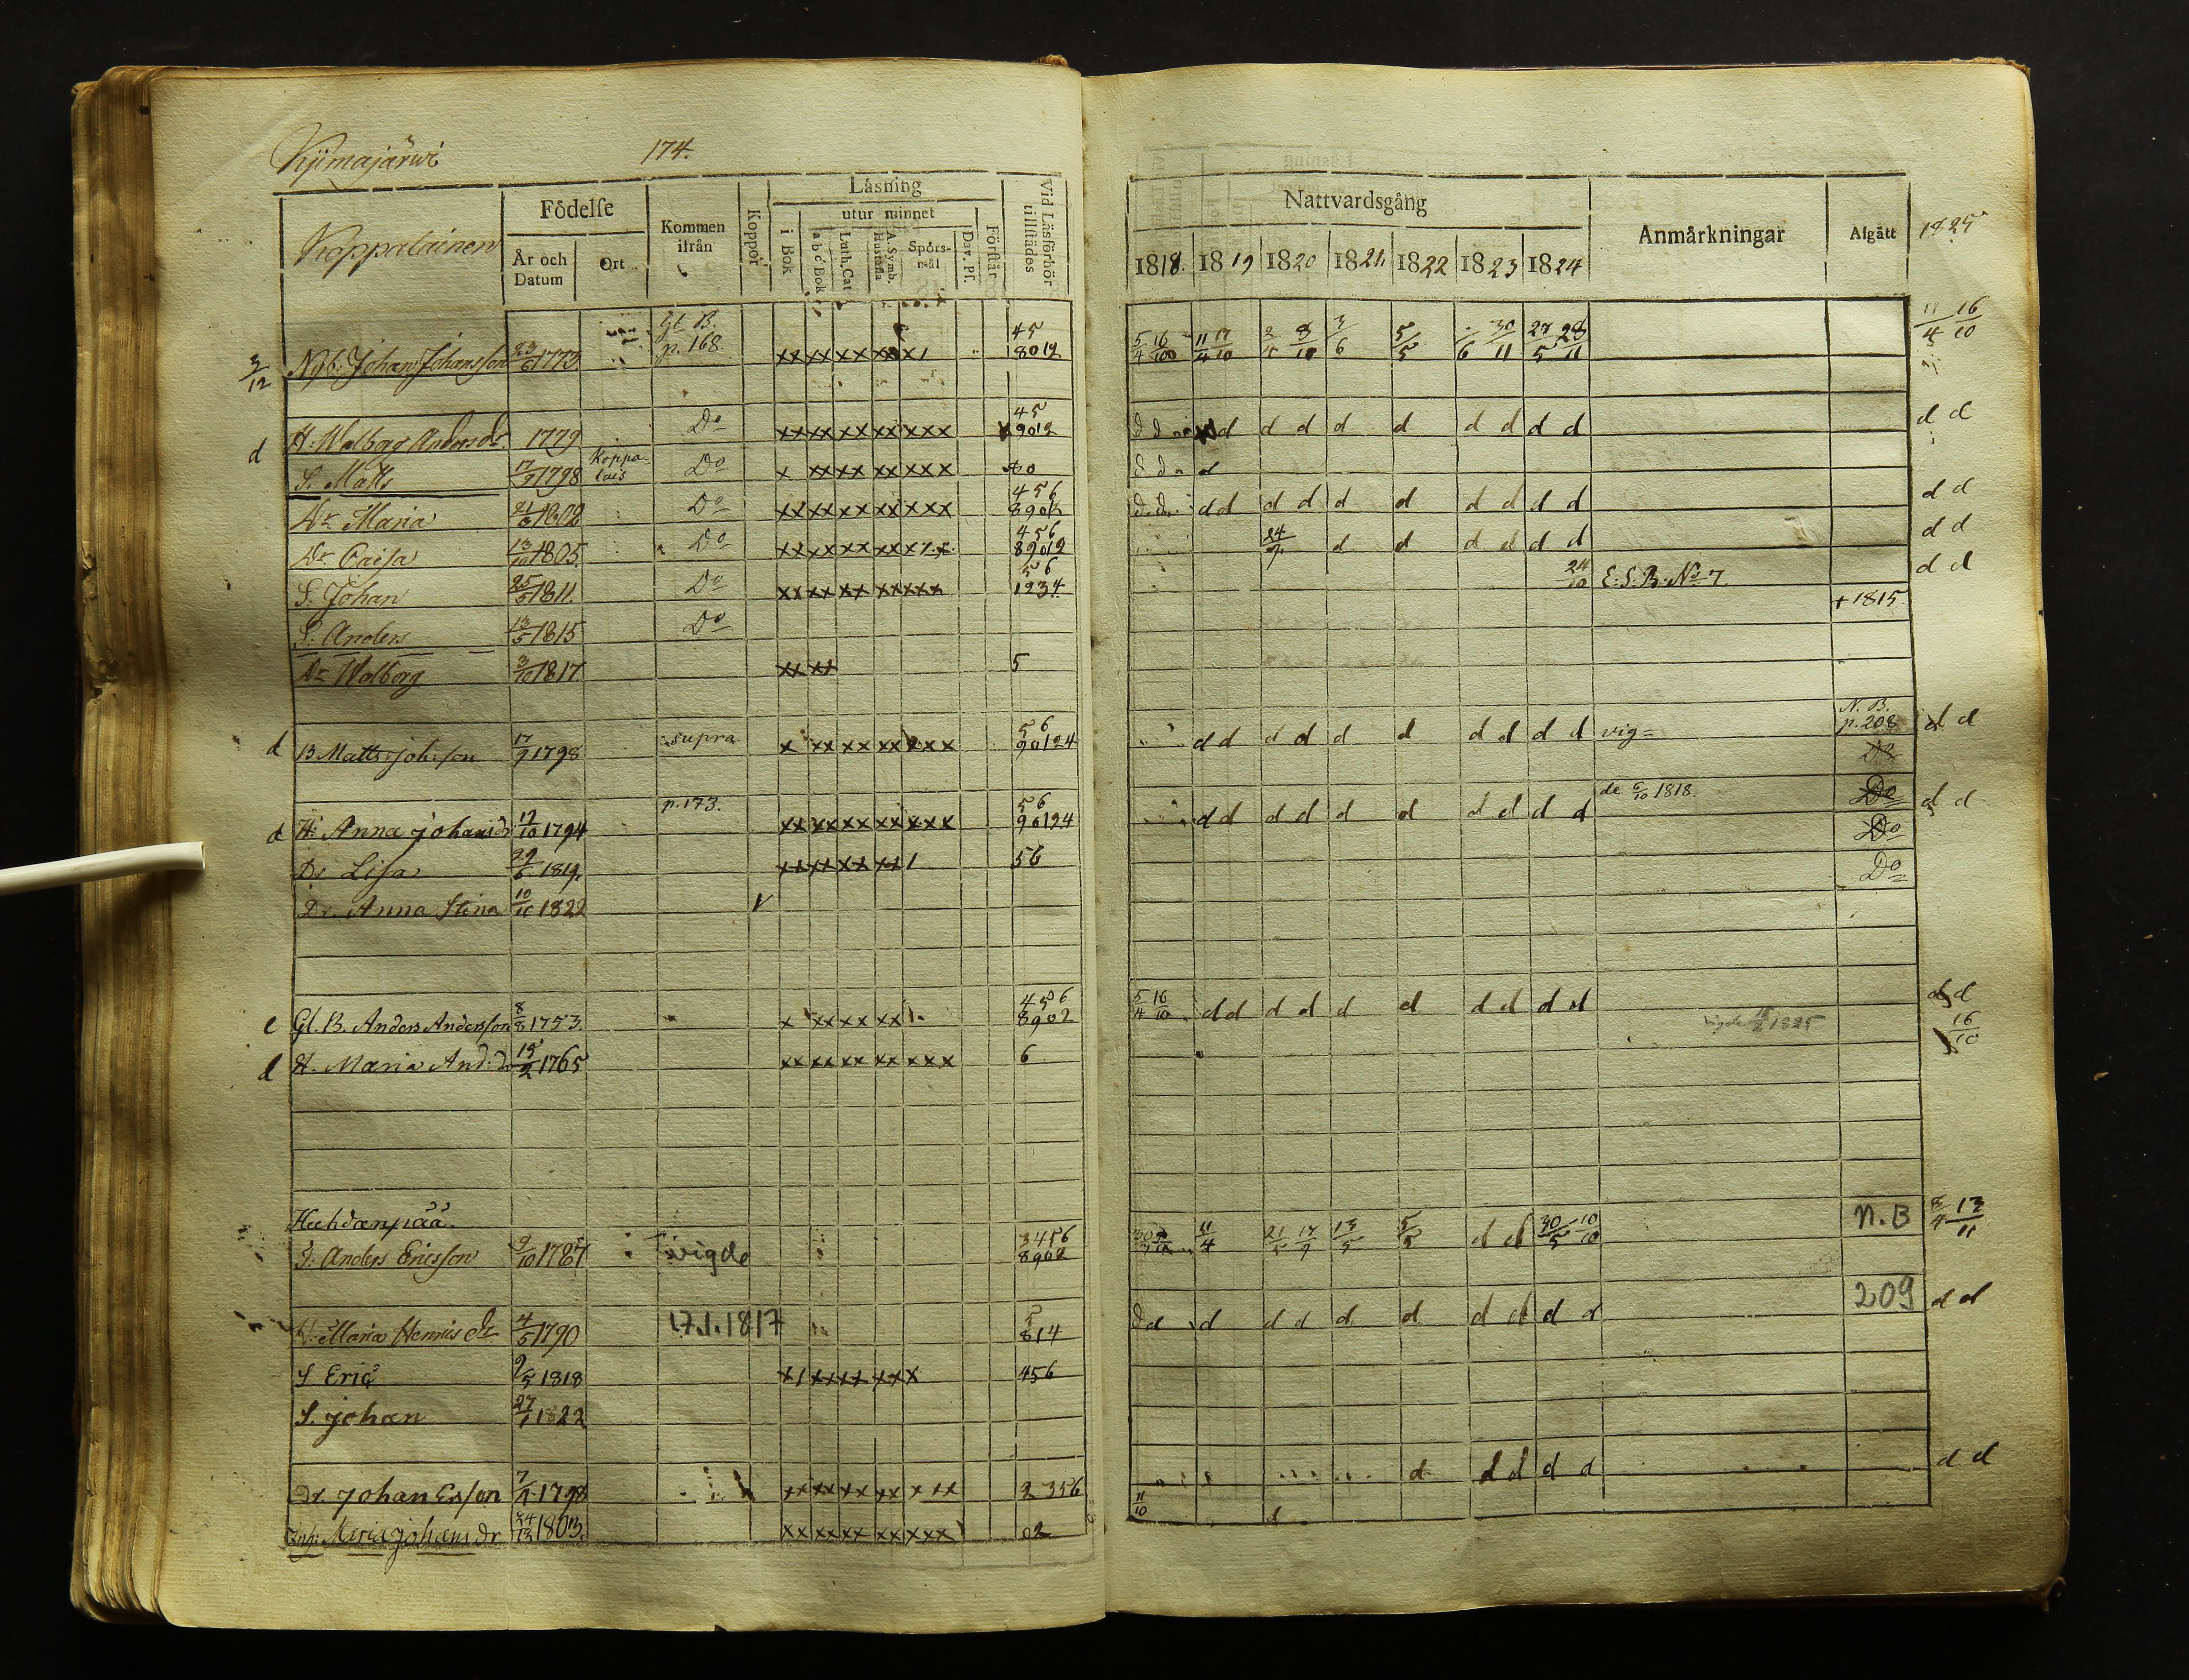 Kjimajärwi 174.
Koppalainen Födelse År och Datum Ort Kommen ifrån Koppor Läsning i Bok utur minnet a b c Bok Luth. Cat A. Symb. Hustafla Spörs-mål Dav. Ps. Förstår Vid Läsförhör tillstädes
Nattvardsgång 1818. 1819 1820 1821. 1822 1823 1824 Anmärkningar Afgått 1825
3/12 Nyb: Johan Johansson 23/6 1773 Gl. B. p. 168. xx xx xx xx x/ 45 18012 5/4 16/10 11/4 17/10 3/6 5/5 30/11 27/5 28/11 11/4 16/10
d H: Walborg Andersdr. 1779 Do xx xx xx xx xxx 45 9012 d d d d d d d d d d d d d
S. Matts 17/9 1798 Koppa-lais Do x xx xx xx xxx d d d
Dr Maria 21/6 1802 Do xx xx xx xx xxx 456 8902 d d d d d d d d d d d d d d
Dr. Caisa 13/10 1805. Do xx xx xx xx x 456 89012 24/9 d d d d d d d d
S. Johan 25/5 1811. Do xx xx xx xx xxx 56 1234 24/10 E: S: B: No 7. d d
S. Anders 13/5 1815 Do + 1815
Dr Walborg 3/10 1817. xx xx 5
d B Matts Joh:son 17/9 1798 supra x xx xx xx xxx 56 90124 d d d d d d d d d d vig= N. B. p. 208 d d
Do
d H: Anna Johansdr 12/10 1794 p. 173. xx xx xx xx xxx 56 90124 d d d d d d d d d d de 6/10 1818. Do d d
Do
Dr Lisa 29/6 1819. xx xx xx xx / 56 Do
Dr. Anna Stina 10/10 1822 V
e Gl. B. Anders Andersson 8/8 1753. x xx xx xx 456 8902 5/4 16/10 d d d d d d d d d d d d
d H. Maria And:dr 15/2 1765 xx xx xx xx xxx 6 vigde 1825 16/10
Huhdanpää.
T: Anders Ericsson 9/10 1787 vigde 3456 8902 11/4 21/5 17/9 13/5 5/5 d d 30/5 10/10 N.B 13/11
H: Maria Henricsdr 4/5 1790 17.1.1817 5 814 d d d d d d d d d d d 209 d d
S Eric 9/5 1818 x/ xx xx xx x 456
S. Johan 27/1 1822
Dr. Johan Ersson 7/4 1798 xx xx xx xx xxx 2356 d d d d d d d
Inh: Maria Johans dr 24/12 1803. xx xx xx xx xxx 02 11/10 d